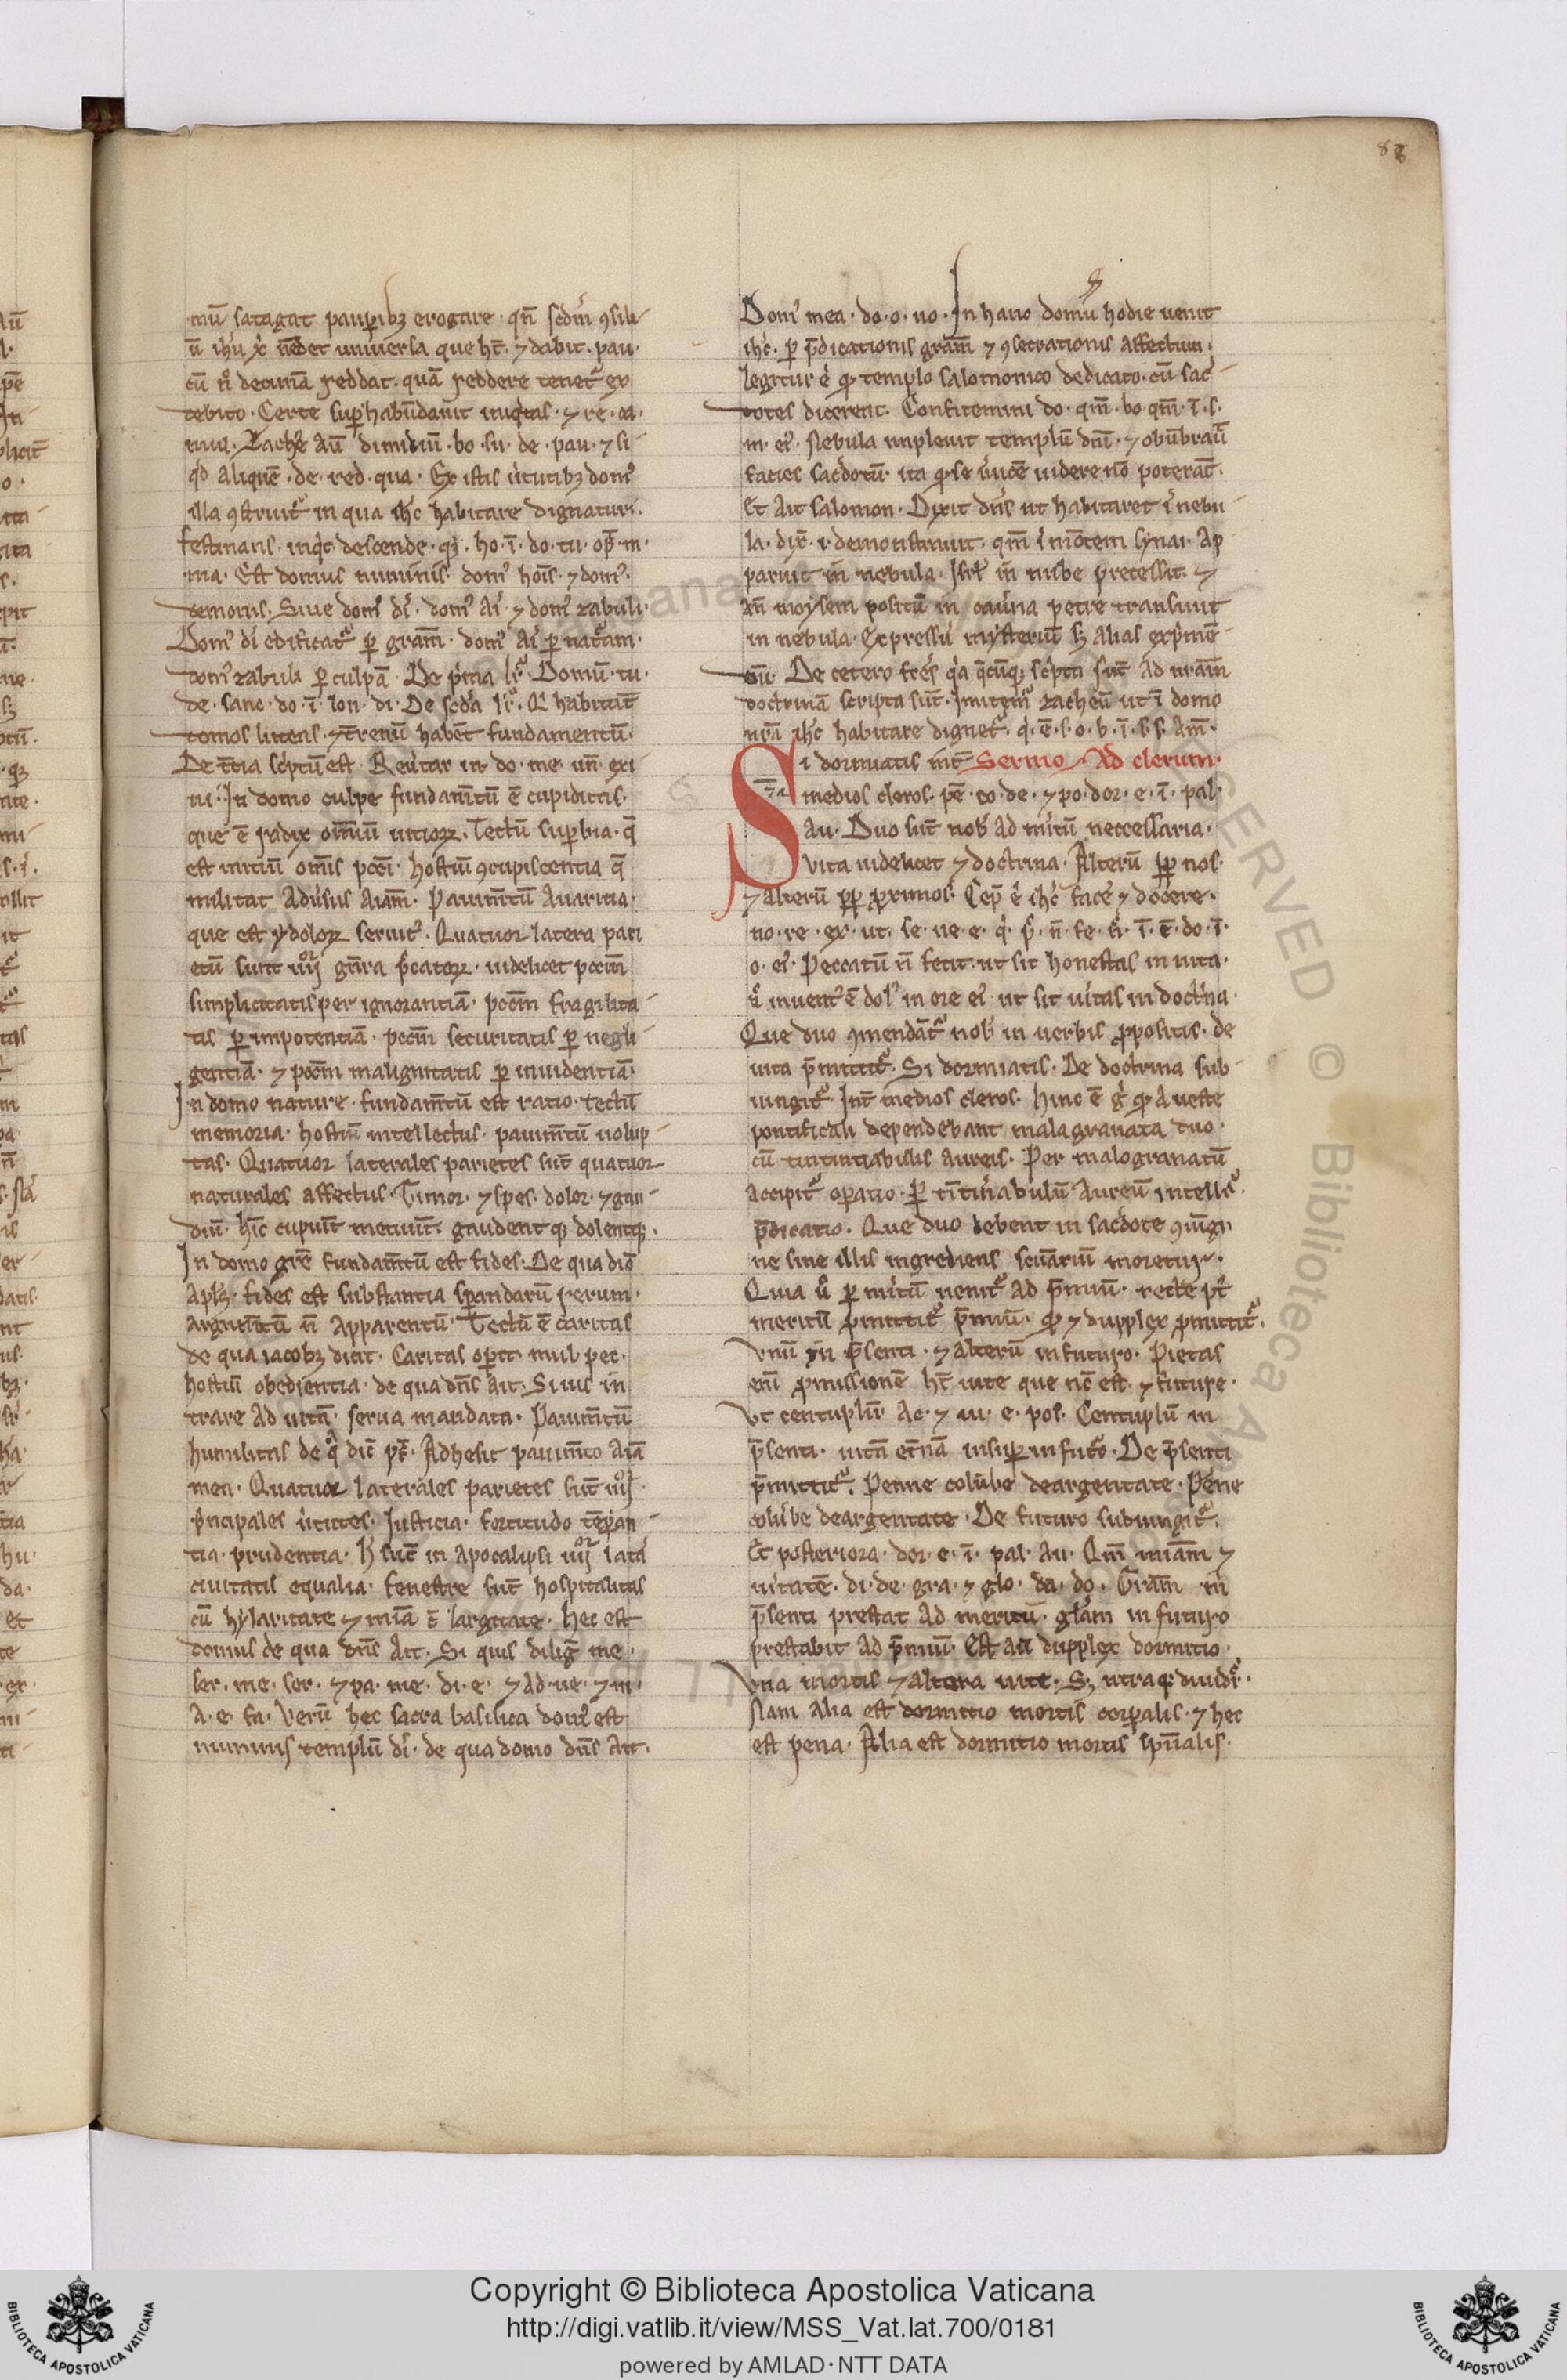 88
mū satagat paup̄ibꝫ erogare. qn̄ scdm̄ ꝯsiliu
ū ih'u xp̄i uēdet uniuersa que ht̄. ⁊ dabit. pau.
cū n̄ decimā reddat. quā reddere tenet᷑ ex
debito. Certe sup̄ habūdauit iniq̇tas. ⁊ re. ca.
mul. Zache' aū dimidiū. bo. su. de. pau. ⁊ si
q̇d aliquē. de. red. qua. Ex istis u'tutibꝫ domꝰ
illa ꝯstruit᷑ in qua ih'c habitare dignatur.
festinans. inq̇t descende. qꝫ. ho. ī. do. tu. op̄. m.
ma. Est domus numinis. domꝰ hoīs. ⁊ domꝰ.
demonis. Siue domꝰ di'. domꝰ ai'. ⁊ domꝰ zabuli.
Domꝰ di' edificat᷑ ꝑ gram̄. domꝰ ai' ꝑ nat᷑am.
domꝰ zabuli ꝑ culpā. De p'ma lr᷑. Domū. tu.
de. sanc. do. ī. lon. di. De scd'a lr᷑. Q' habitāt
domos luteas. ⁊ t̄renū habēt fundamentū.
De t̄tia sc'ptū est. Reu'tar in do. me. un̄. exi
ui. In domo culpe fundam̄tū ē cupiditas.
que ē radix omīū uitioꝝ. Tectū sup̄bia. q̄
est initiū omīs pcc̄i. hostiū ꝯcupiscentia q̄
militat adu'sus aiam̄. Pauim̄tū auaritia.
que est ydoloꝝ seruitꝰ. Quatuor latera pari
etū sunt iiijor gn̄ra p̄catoꝝ. uidelicet pccm̄
simplicitatis per ignorantiā. pccm̄ fragilita
tis ꝑ impotentiā. pccm̄ securitatis ꝑ negli
gentiā. ⁊ pccm̄ malignitatis ꝑ inuidentiā.
In domo nature. fundam̄tū est ratio. tectū
memoria. hostiū intellectus. pauim̄tū uolup
tas. Quatuor laterales parietes sūt quatuor
naturales affectus. Timor. ⁊ spes. dolor. ⁊ gau
diū. hīc cupiūt metuūt. gaudent qꝫ dolentqꝫ.
In domo gr̄e fundam̄tū est fides. De qua dic̄
apl's. fides est substantia sp̄andarū rerum.
argum̄tū n̄ apparentū. Tectū ē caritas
de qua iacobꝫ dicit. Caritas op̄it. mul pec.
hostiū obedientia. de qua dn̄s ait. Si uis in
trare ad uitā. serua mandata. Pauim̄tū
humilitas de q̇ dic̄ p̄s. Adhesit pauim̄to aiā
mea. Quatuor laterales parietes sūt iiijor
p'ncipales u'tutes. Justicia. fortitudo tēp̄an
tia. prudentia. H sūt in apocalipsi iiijor lata
ciuitatis equalia. fenestre sūt hospitalitas
cū hylaritate ⁊ mīa c̄ largitate. Hec est
domus de qua dn̄s ait. Si quis diliḡ me.
ser. me. ser. ⁊ pa. me. di. e. ⁊ ad. ue. ⁊ m.
a. e. fa. Verū hec sacra basilica domꝰ est
numinis templū di'. de qua domo dn̄s ait.
Domꝰ mea. do. o. uo. In hanc domū hodie uenit
ih'c. ꝑ p̄dicationis gram̄ ⁊ ꝯsecrationis affectum.
legitur ē ꝙ templo salomonico dedicato. cū sac'
dotes dicerent. Confitemini do. qm̄. bo. qm̄. ī. s.
m. eꝰ. Nebula impleuit templū dn̄i. ⁊ obūbrau̅
facies sacdotū. ita ꝙ se īuicē uidere nō poterāt.
Et ait salomon. Dixit dn̄s ut habitaret ī nebu
la. dix̄. ⁊ demonstrauit. qm̄ ī mōtem synai. Ap
paruit in nebula. Isrl' in nube precessit. ⁊
an̄ moysem positū in cau'na petre transiuit
in nebula. Expressū mysteriū sꝫ alias exp'mē
dū. De cetero frēs q'a q̄cūqꝫ sc'pta sūt ad nrām̄
doctrinā scripta sūt. Imitem᷑ zacheū ut ī domo
nr̄a ih'c habitare dignet᷑. q. ē. s. o. b. ī. s. s. am̄.
Si dormiatis int̄ Sermo Ad clerum.
medios cleros. pē. co. de. ⁊ po. dor. e. ī. pal.
au. Duo sūt nob' ad m'itū neccessaria.
uita uidelicet ⁊ doctrina. Alterū ꝓp̄ nos.
⁊ alterū ꝓp̄ ꝓximos. Cep̄ ē ih'c face' ⁊ docere.
no. re. ex. ut. se. ue. e. q'. p̄. n̄. fe. n'. ī. ē. do. ī.
o. eꝰ. Peccatū n̄ fecit. ut sit honestas in uita.
n' inuentꝰ ē dolꝰ in ore eꝰ. ut sit u'itas in doct'na.
Que duo ꝯmendāt᷑ nob' in uerbis ꝓpositis. de
uita p̄mittit᷑. Si dormiatis. De doctrina sub
iungit᷑. Int̄ medios cleros. Hinc ē g' ꝙ a ueste
pontificali dependebant mala granata cuo
cū tintinnabulis aureis. Per malogranatū
accipit᷑ oꝑatio. ꝑ tītinabulū aureū intell'r᷑.
p̄dicatio. Que duo debent in sac'dote ꝯiūgi
ne sine illis ingrediens sc̄uariū moretur.
Quia u̇ ꝑ m'itū uenit᷑ ad p̄miū. recte p̄
meritū ꝓmittit᷑ p̄miū. ꝙ ⁊ dupplex ꝓmittit᷑.
Vnū in p̄senti. ⁊ alterū in futuro. Pietas
enī ꝓmissionē ht̄ uite que nc̄ est. ⁊ future.
Vt centuplū. Ac. ⁊ ui. e. pos. Centuplū in
p̄senti. uitā et̄nā insuꝑ in futo. De p̄senti
p̄mittit᷑. Penne colūbe deargentate. Pēne
colūbe deargentate. De futuro subiungit᷑.
Et posteriora. dor. e. ī. pal. au. Qm̄ miam̄ ⁊
u'itatē. di. de. gra. ⁊ glo. da. do. Gram̄ in
p̄senti prestat ad meritū. gl'am in futuro
prestabit ad p̄miū. Est aū dupplex dormitio.
Vna mortis ⁊ altera uite. Sꝫ utraqꝫ diuidr᷑.
Nam alia est dormitio mortis corꝑalis. ⁊ hec
est pena. Alia est dormitio mortis sp̄ualis.
Copyright © Biblioteca Apostolica Vaticana
http://digi.vatlib.it/view/MSS_Vat.lat.700/0181
powered by AMLAD · NTT DATA
BIBLIOTECA APOSTOLICA VATICANA
BIBLIOTECA APOSTOLICA VATICANA